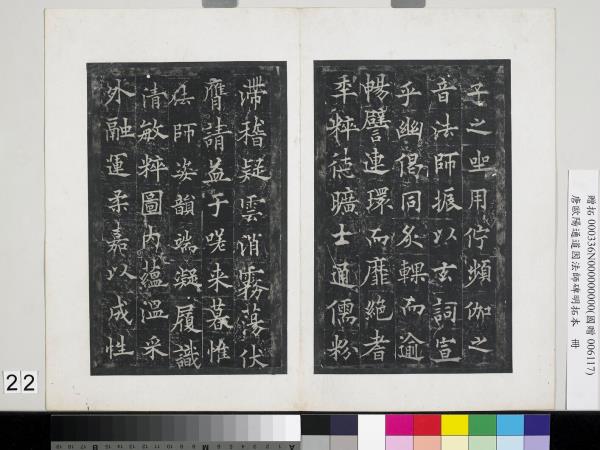 子之坐用佇頻伽之
音法師振以玄詞宣
乎幽偈同炙輠而逾
暢譬連環而靡絕耆
年粹德曠士通儒粉
滯稽疑雲消霧蕩伏
膺請益于嗟來暮惟
法師姿韻端凝履識
清敏粹圖內蘊溫采
外融運柔嘉以成性
贈拓 000336N000000000(國贈 006117)
唐歐陽通道因法師碑明拓本 冊
22